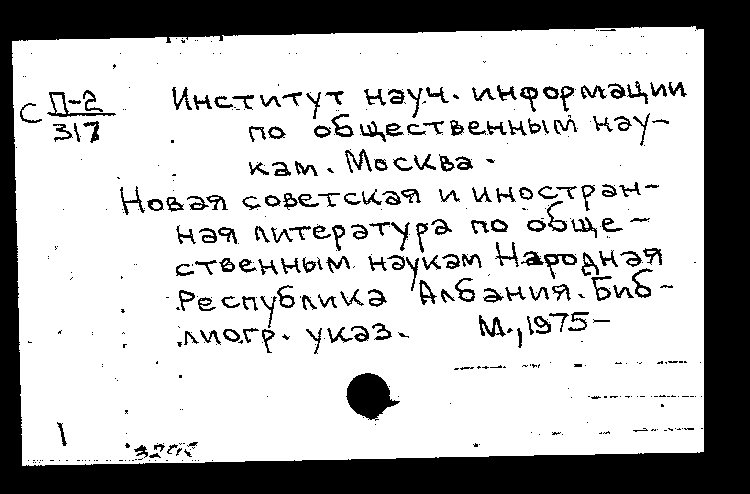 С П-2
317
Институт науч. информации
по общественным нау-
кам. Москва.
Новая советская и иностран-
ная литература по обще-
ственным наукам Народная
Республика Албания. Биб-
лиогр. указ. М., 1975-
1